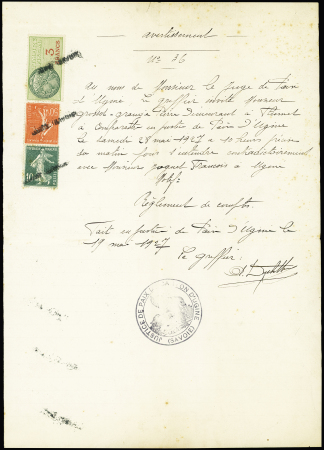 avertissement
N° 36
Au nom de Monsieur le juge de Paix
d'Ugine le greffier invite Monsieur
Grosset-Grange Pierre Demeurant à
à Comparaître en justice de Paix d'Ugine
le Samedi 28 mai 1927 à 10 heures
du matin pour l'entendre contradictoirement
avec Monsieur Joguet François à Ugine
Objet
Règlement de compte
Fait en justice de Paix d'Ugine le
19 mai 1927
le greffier
JUSTICE DE PAIX CANTON D'UGINE
(SAVOIE)
10